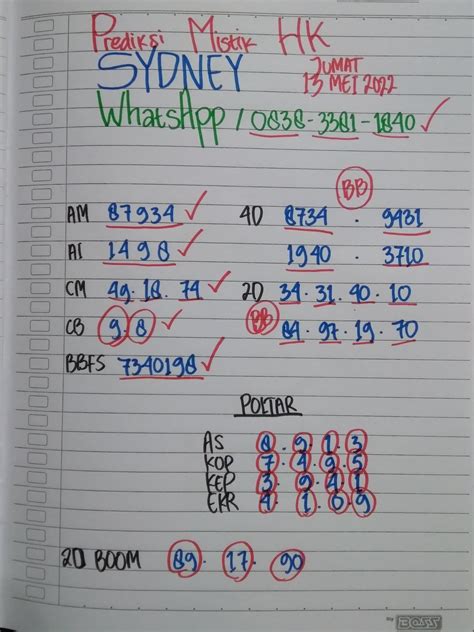 Prediksi Mistik HK
SYDNEY JUMAT
13 MEI 2022
WhatsApp / 0838-3381-1840 ✓
BB
AM 87934 ✓ 4D 8734 . 9431
AI 1498 ✓ 1940 . 3710
CM 49.18.74 ✓ 2D 34.31.40.10
CB 9.8 ✓ BB 84.97.19.70
BBFS 7340198 ✓
POLTAR
AS 8.9.1.3
KOP 7.4.9.5
KEP 3.9.4.1
EKR 4.1.0.9
2D BOOM 89.17.90
my BOSS